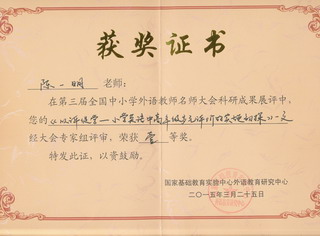 获奖证书
陈一明 老师:
在第三届全国中小学外语教师名师大会科研成果展评中,
您的《以评促学—小学英语中高年级多元评价的实施和探》一文
经大会专家组评审,荣获 壹 等奖。
特发此证,以资鼓励。
国家基础教育实验中心外语教育研究中心
二〇一五年三月二十五日